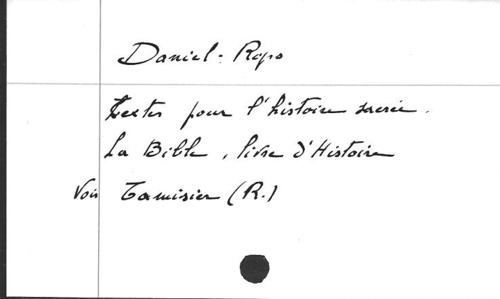 Daniel-Rops
Textes pour l'histoire sacrée.
La Bible, livre d'Histoire
Voir Tamisier (R.)